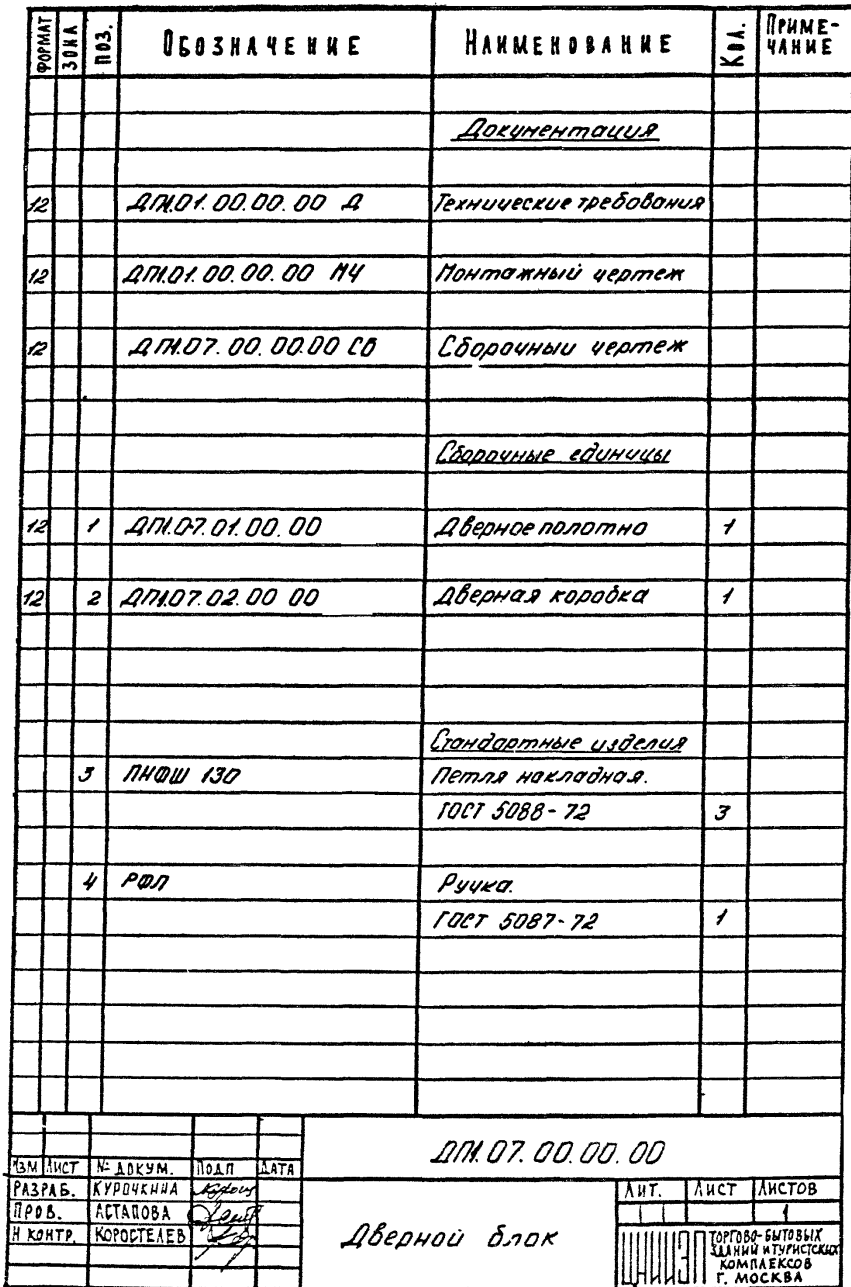 ФОРМАТ ЗОНА ПОЗ. ОБОЗНАЧЕНИЕ НАИМЕНОВАНИЕ КОЛ. ПРИМЕ-ЧАНИЕ
Документация
12 ДП1.01.00.00.00 Д Технические требования
12 ДП1.01.00.00.00 МЧ Монтажный чертеж
12 ДП1.07.00.00.00 СБ Сборочный чертеж
Сборочные единицы
12 1 ДП1.07.01.00.00 Дверное полотно 1
12 2 ДП1.07.02.00 00 Дверная коробка 1
Стандартные изделия
3 ПНФШ 130 Петля накладная.
ГОСТ 5088-72 3
4 РФЛ Ручка.
ГОСТ 5087-72 1
ДП1.07.00.00.00
ИЗМ ЛИСТ № ДОКУМ. ПОДП ДАТА
РАЗРАБ. КУРОЧКИНА
ПРОВ. АСТАПОВА
Н КОНТР. КОРОСТЕЛЕВ
Дверной блок
ЛИТ. ЛИСТ ЛИСТОВ
1
ЦНИИЭП ТОРГОВО-БЫТОВЫХ
ЗДАНИЙ И ТУРИСТСКИХ
КОМПЛЕКСОВ
Г. МОСКВА